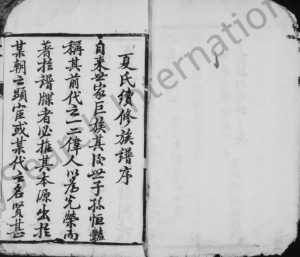 夏氏續修族譜序
自來世家巨族其後世子孫恒豔
稱其前代之一二偉人以為光榮而
著於譜牒者必推其本源出於
某朝之顯宦或某代之名賢甚
Search International